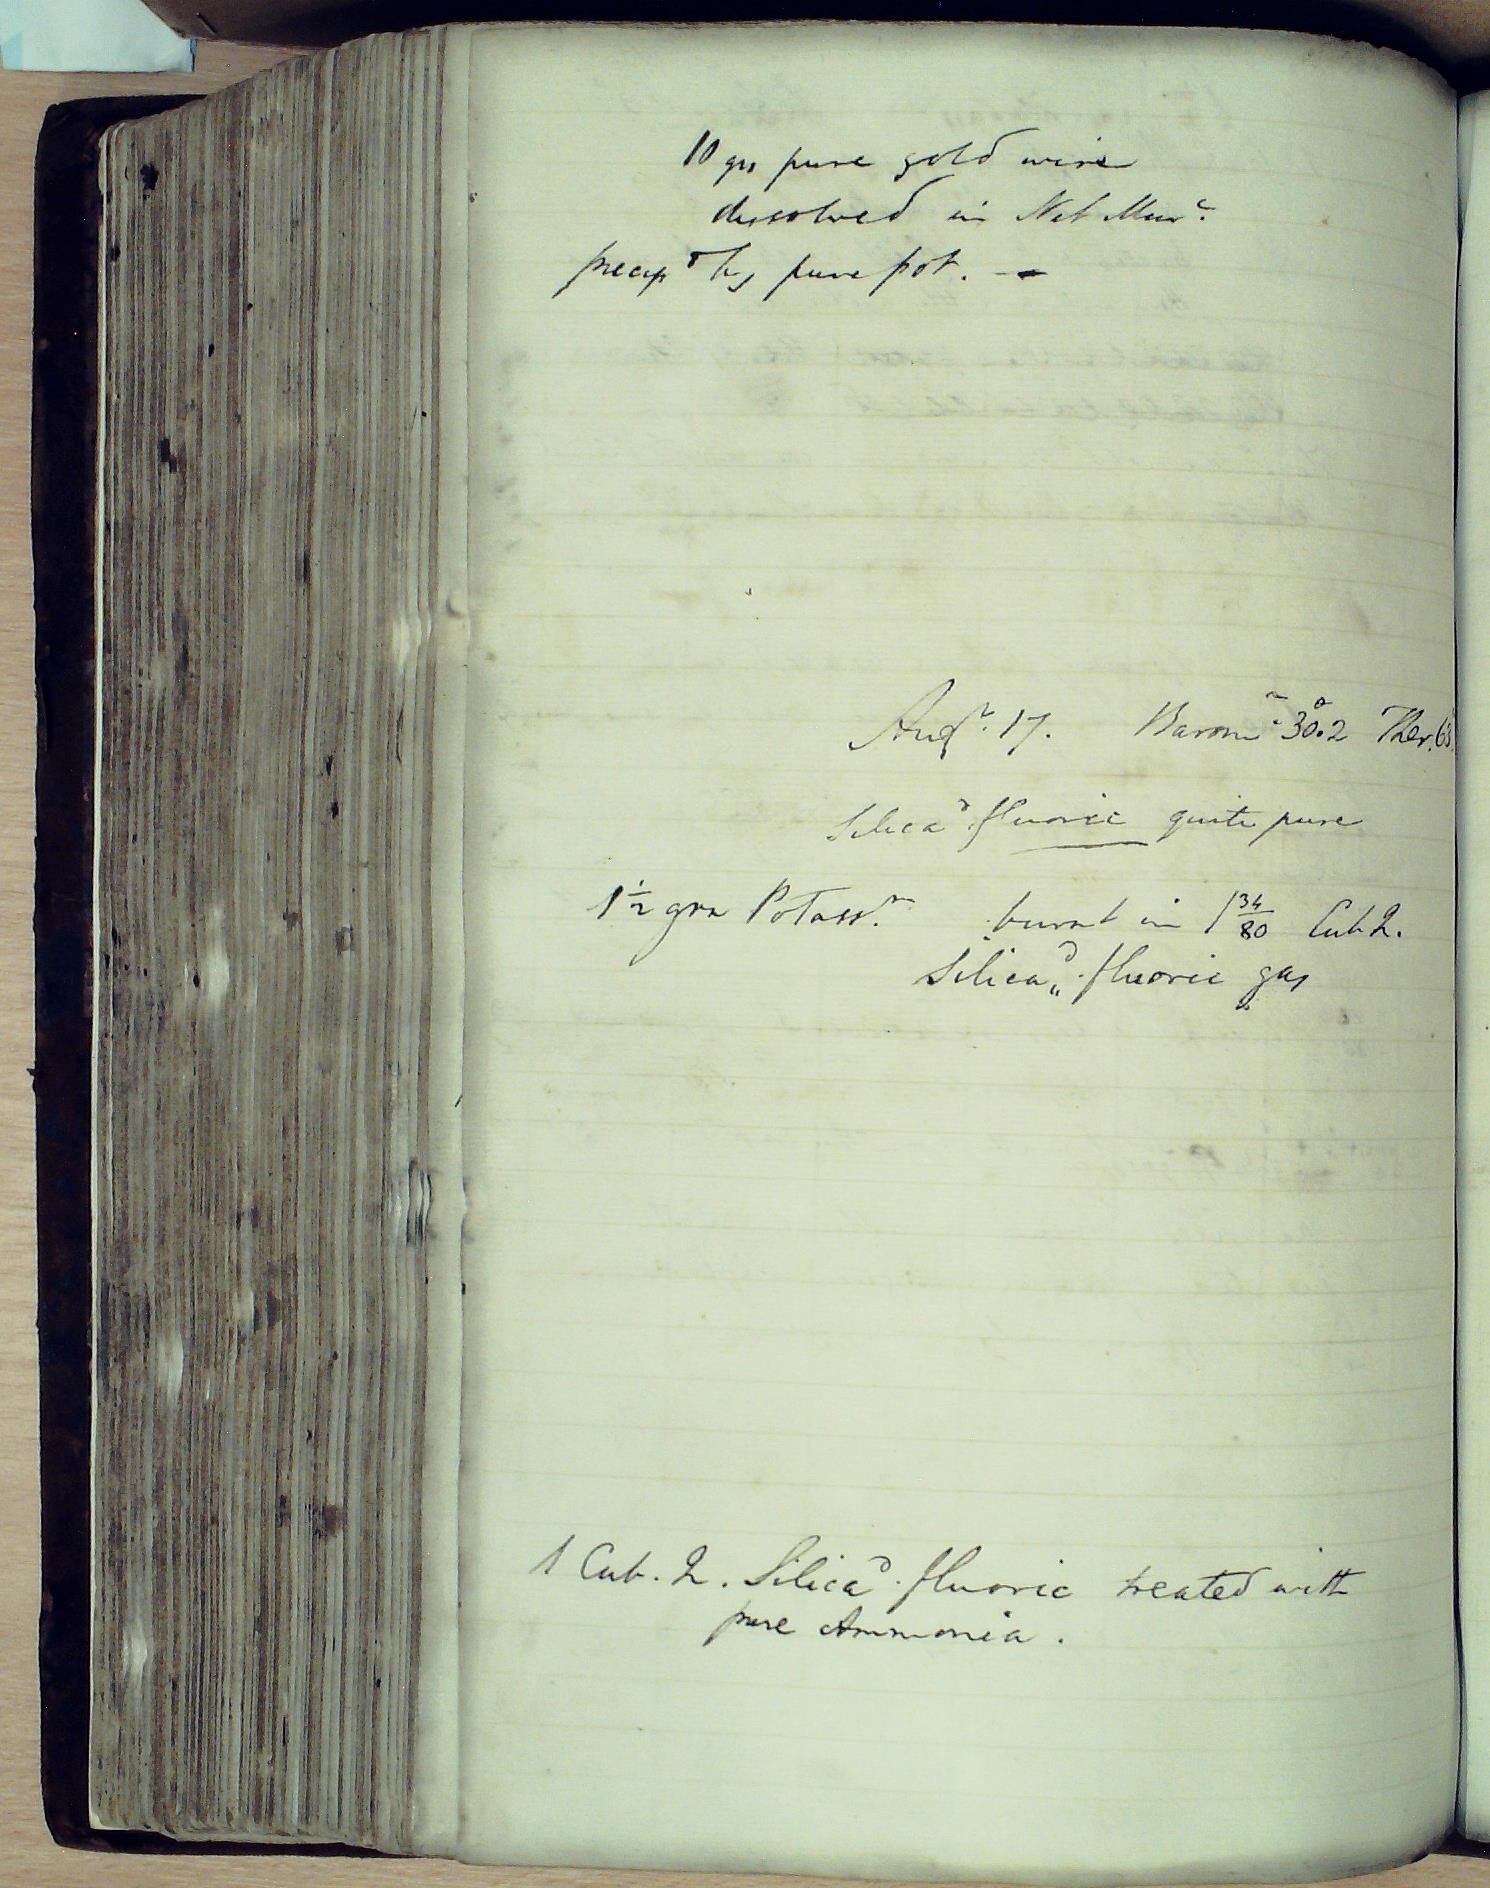 10 grs pure gold wire
dissolved in Nit Murc.
precipd by pure pot. —
Augt. 17. Baromr 30.2 Ther. 63
Silicad. fluoric quite pure
1 1/2 grn Potassm. burnt in 1 34/80 Cub I.
Silicad. fluoric gas
1 Cub. I. Silicad. fluoric treated with
pure Ammonia.